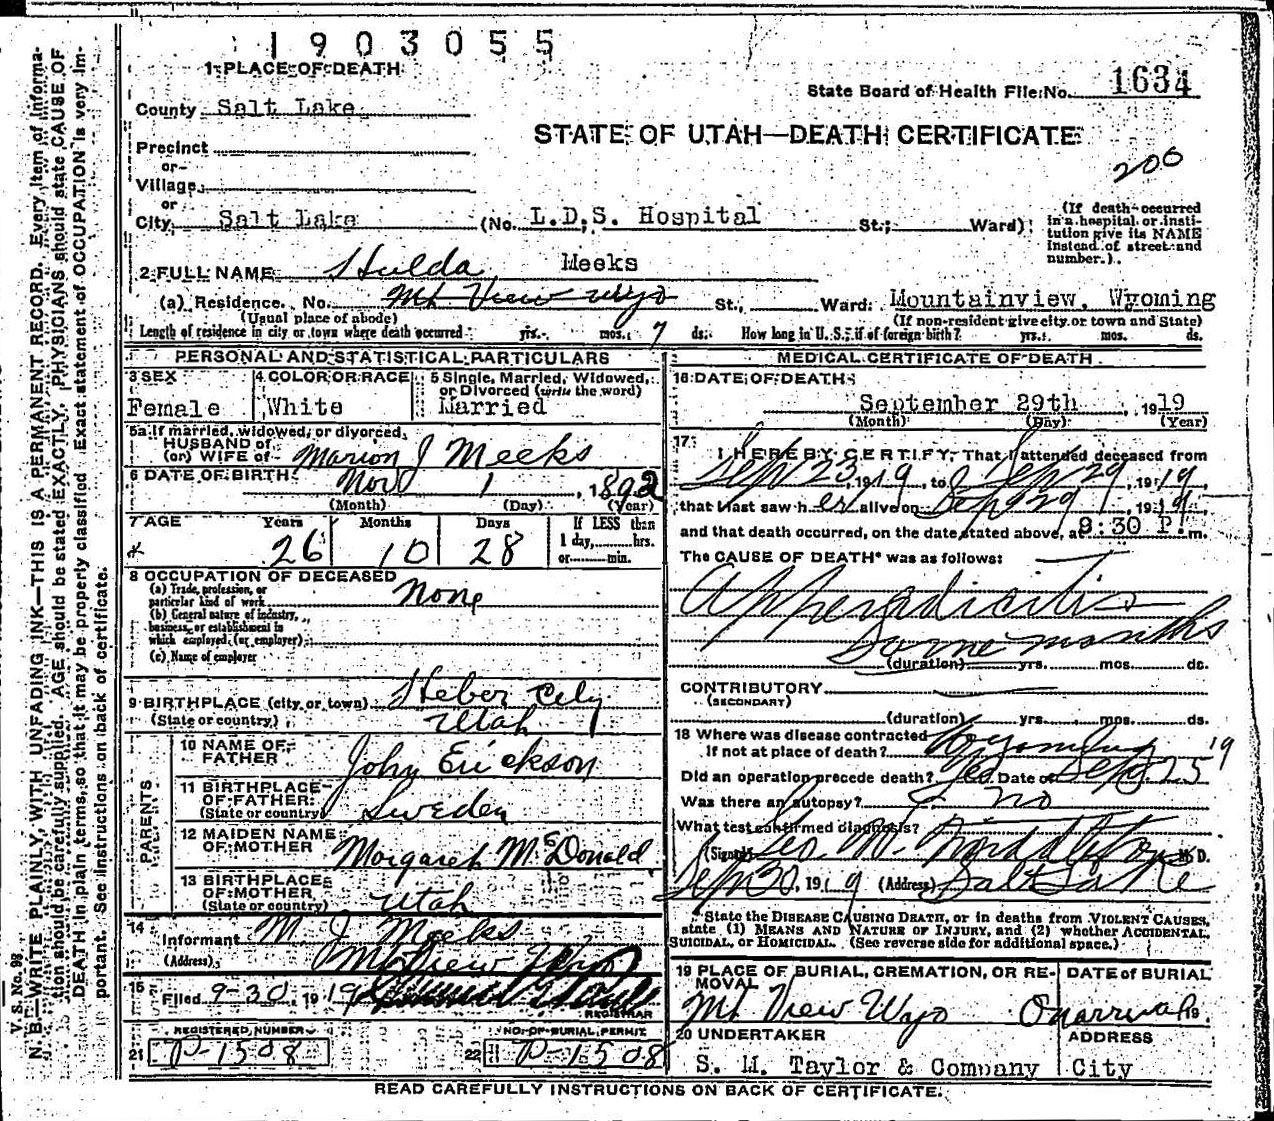 1903055
1 PLACE OF DEATH
State Board of Health File No. 1634
County Salt Lake
STATE OF UTAH—DEATH CERTIFICATE
200
Precinct
or
Village
or
City Salt Lake (No. L.D.S. Hospital St.; Ward)
(If death occurred in a hospital or institution give its NAME instead of street and number.)
2 FULL NAME Hulda Meeks
(a) Residence. No. Mt View Wyo St., Ward. Mountainview, Wyoming
(Usual place of abode) (If non-resident give city or town and State)
Length of residence in city or town where death occurred yrs. mos. 7 ds. How long in U. S., if of foreign birth? yrs. mos. ds.
PERSONAL AND STATISTICAL PARTICULARS
3 SEX
Female
4 COLOR OR RACE
White
5 Single, Married, Widowed, or Divorced (write the word)
Married
5a If married, widowed, or divorced,
HUSBAND of
(or) WIFE of Marion J Meeks
6 DATE OF BIRTH Nov 1, 1892
(Month) (Day) (Year)
7 AGE Years Months Days If LESS than
26 10 28 1 day, hrs.
or min.
8 OCCUPATION OF DECEASED
(a) Trade, profession, or
particular kind of work None
(b) General nature of industry,
business, or establishment in
which employed (or employer)
(c) Name of employer
9 BIRTHPLACE (city or town) Heber City
(State or country) Utah
PARENTS
10 NAME OF FATHER John Erickson
11 BIRTHPLACE OF FATHER (State or country) Sweden
12 MAIDEN NAME OF MOTHER Margaret McDonald
13 BIRTHPLACE OF MOTHER (State or country) Utah
14
Informant M. J. Meeks
(Address) Mt View Wyo
15
Filed 9-30, 1919
REGISTRAR
REGISTERED NUMBER NO. OF BURIAL PERMIT
21 P-1508 22 P-1508
MEDICAL CERTIFICATE OF DEATH
16 DATE OF DEATH
September 29th, 1919
(Month) (Day) (Year)
17 I HEREBY CERTIFY, That I attended deceased from
Sep 23, 1919, to Sep 29, 1919,
that I last saw her alive on Sep 29, 1919,
and that death occurred, on the date stated above, at 9:30 P. m.
The CAUSE OF DEATH* was as follows:
Appendicitis
Some months
(duration) yrs. mos. ds.
CONTRIBUTORY
(SECONDARY)
(duration) yrs. mos. ds.
18 Where was disease contracted
If not at place of death? Wyoming
Did an operation precede death? Yes Date of Sep 25 '19
Was there an autopsy? no
What test confirmed diagnosis?
(Signed) Geo. W. Middleton M. D.
Sep 30, 1919 (Address) Salt Lake
*State the DISEASE CAUSING DEATH, or in deaths from VIOLENT CAUSES,
state (1) MEANS AND NATURE OF INJURY, and (2) whether ACCIDENTAL,
SUICIDAL, or HOMICIDAL. (See reverse side for additional space.)
19 PLACE OF BURIAL, CREMATION, OR REMOVAL DATE of BURIAL
Mt View Wyo On arrival 19
20 UNDERTAKER ADDRESS
S. M. Taylor & Company City
READ CAREFULLY INSTRUCTIONS ON BACK OF CERTIFICATE.
V. S. No. 98
N. B.—WRITE PLAINLY, WITH UNFADING INK—THIS IS A PERMANENT RECORD. Every item of information should be carefully supplied. AGE should be stated EXACTLY, PHYSICIANS should state CAUSE OF DEATH in plain terms, so that it may be properly classified. Exact statement of OCCUPATION is very important. See instructions on back of certificate.